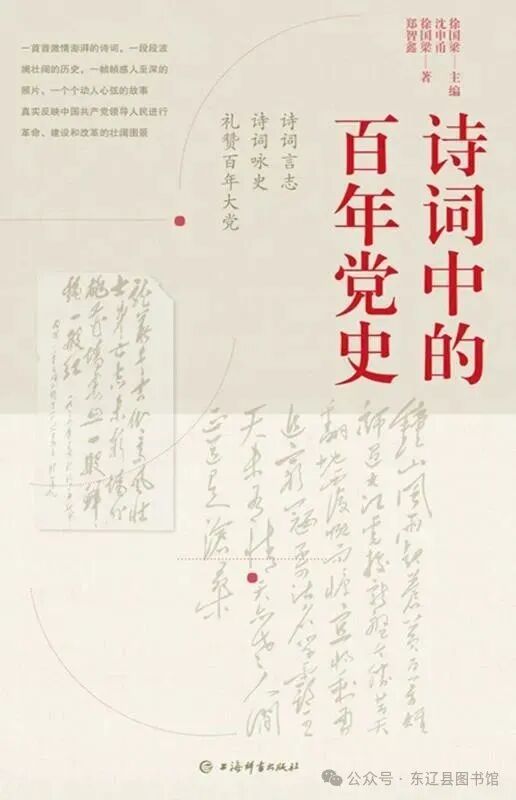 一首首激情澎湃的诗词，一段段波
澜壮阔的历史，一帧帧感人至深的
照片，一个个动人心弦的故事
真实反映中国共产党领导人民进行
革命、建设和改革的壮阔图景
徐国梁——主编
沈申甬
徐国梁——著
郑智鑫
诗词中的
百年党史
诗词言志
诗词咏史
礼赞百年大党
鐘山風雨起蒼黃百萬雄
師過大江虎踞龍盤今勝昔天
翻地覆慨而慷宜將剩勇
追窮寇不可沽名學霸王
天若有情天亦老人間
正道是滄桑
上海辞书出版社
公众号 · 东辽县图书馆